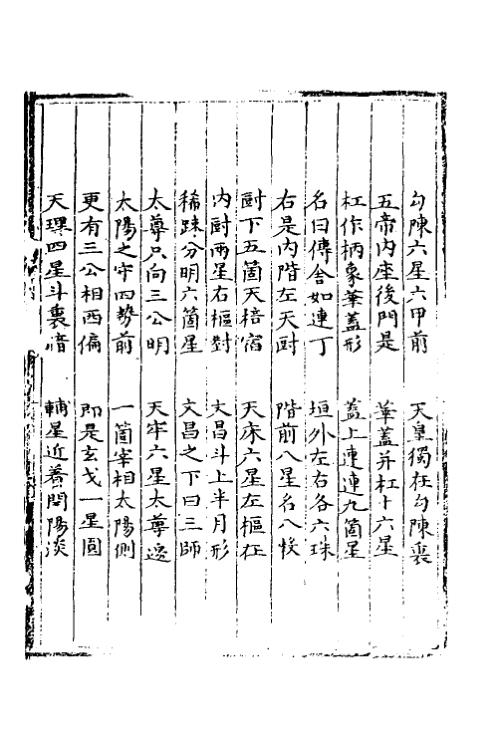 勾陳六星六甲前　天皇獨在勾陳裏
五帝內座後門是　華蓋并杠十六星
杠作柄象華蓋形　蓋上連連九箇星
名曰傳舍如連丁　垣外左右各六珠
右是內階左天厨　階前八星名八榖
厨下五箇天棓宿　天床六星左樞在
內厨兩星右樞對　文昌斗上半月形
稀踈分明六箇星　文昌之下曰三師
太尊只向三公明　天牢六星太尊邊
太陽之守四勢前　一箇宰相太陽側
更有三公相西偏　即是玄戈一星圓
天理四星斗裏暗　輔星近着閉陽淡